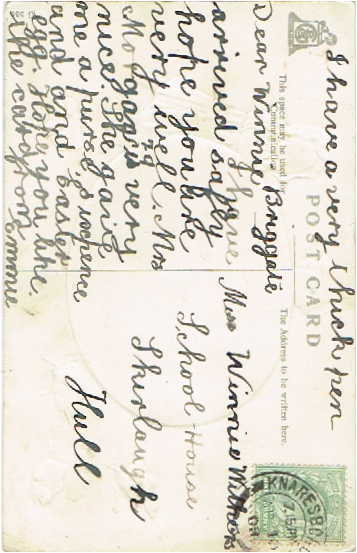 I have a very thick pen
POST CARD
This space may be used for
Communication
The Address to be written here.
Briggate
Dear Winnie I have
arrived safely
hope you are
very well. Mrs
Mc is very
nice. She gave
me a purse, 2 sixpence
and and Easter
egg. Hope you like
the card from
Emmie
Miss Winnie
School House
Skirlaugh
Hull
KNARESBO
7.15PM